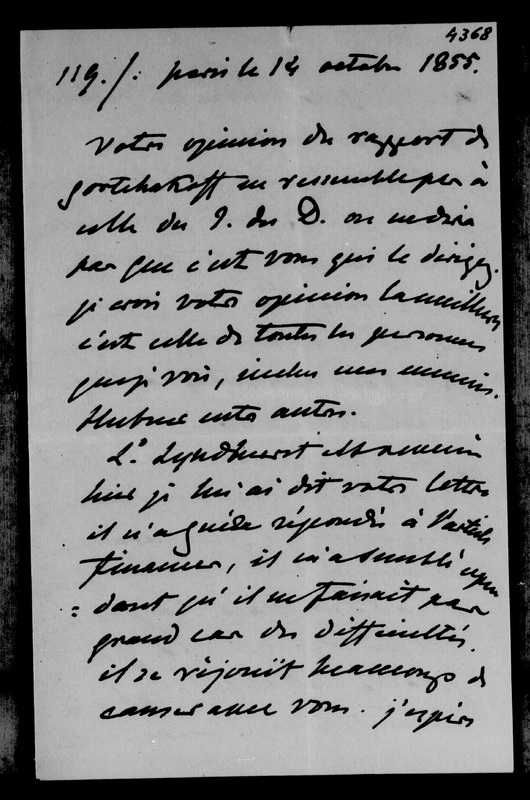 4368
119./. paris le 14 octobre 1855.
Votre opinion du rapport de
gortchakoff ne ressemble pas à
celle du J. des D. on ne dira
pas que c'est vous qui le dirigez.
je crois votre opinion la meilleure
c'est celle de toutes les personnes
que je vois, inclus mes ennemis.
Hubner entr'autres.
Ld Lyndhurst est venu
hier je lui ai dit votre lettre
il n'a guère répondu à l'article
finances, il m'a semblé cepen
= dant qu'il ne faisait pas
grand cas des difficultés.
il se réjouit beaucoup de
causer avec vous. j'espère